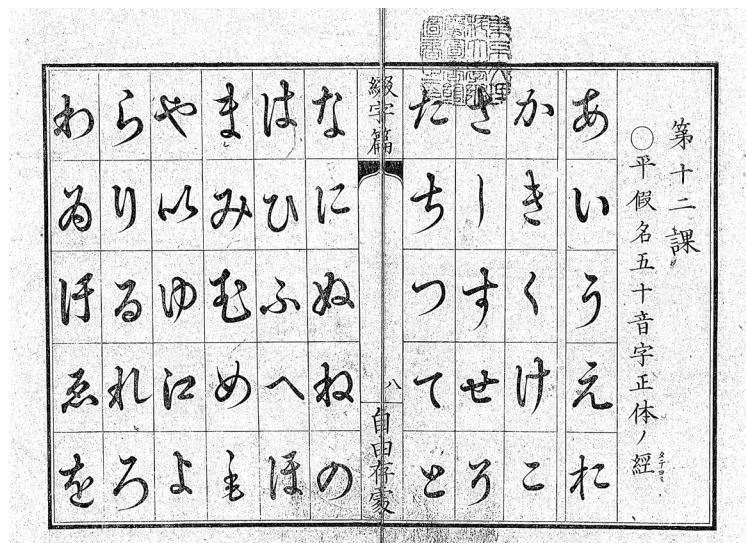 第十二課
○平假名五十音字正体ノ經
タテヨミ
あいうえお
かきくけこ
さしすせそ
たちつてと
綴字篇
八
自由存處
なにぬねの
はひふへほ
まみむめも
や𛀆ゆ𛀁よ
らりるれろ
わゐ𛄟ゑを